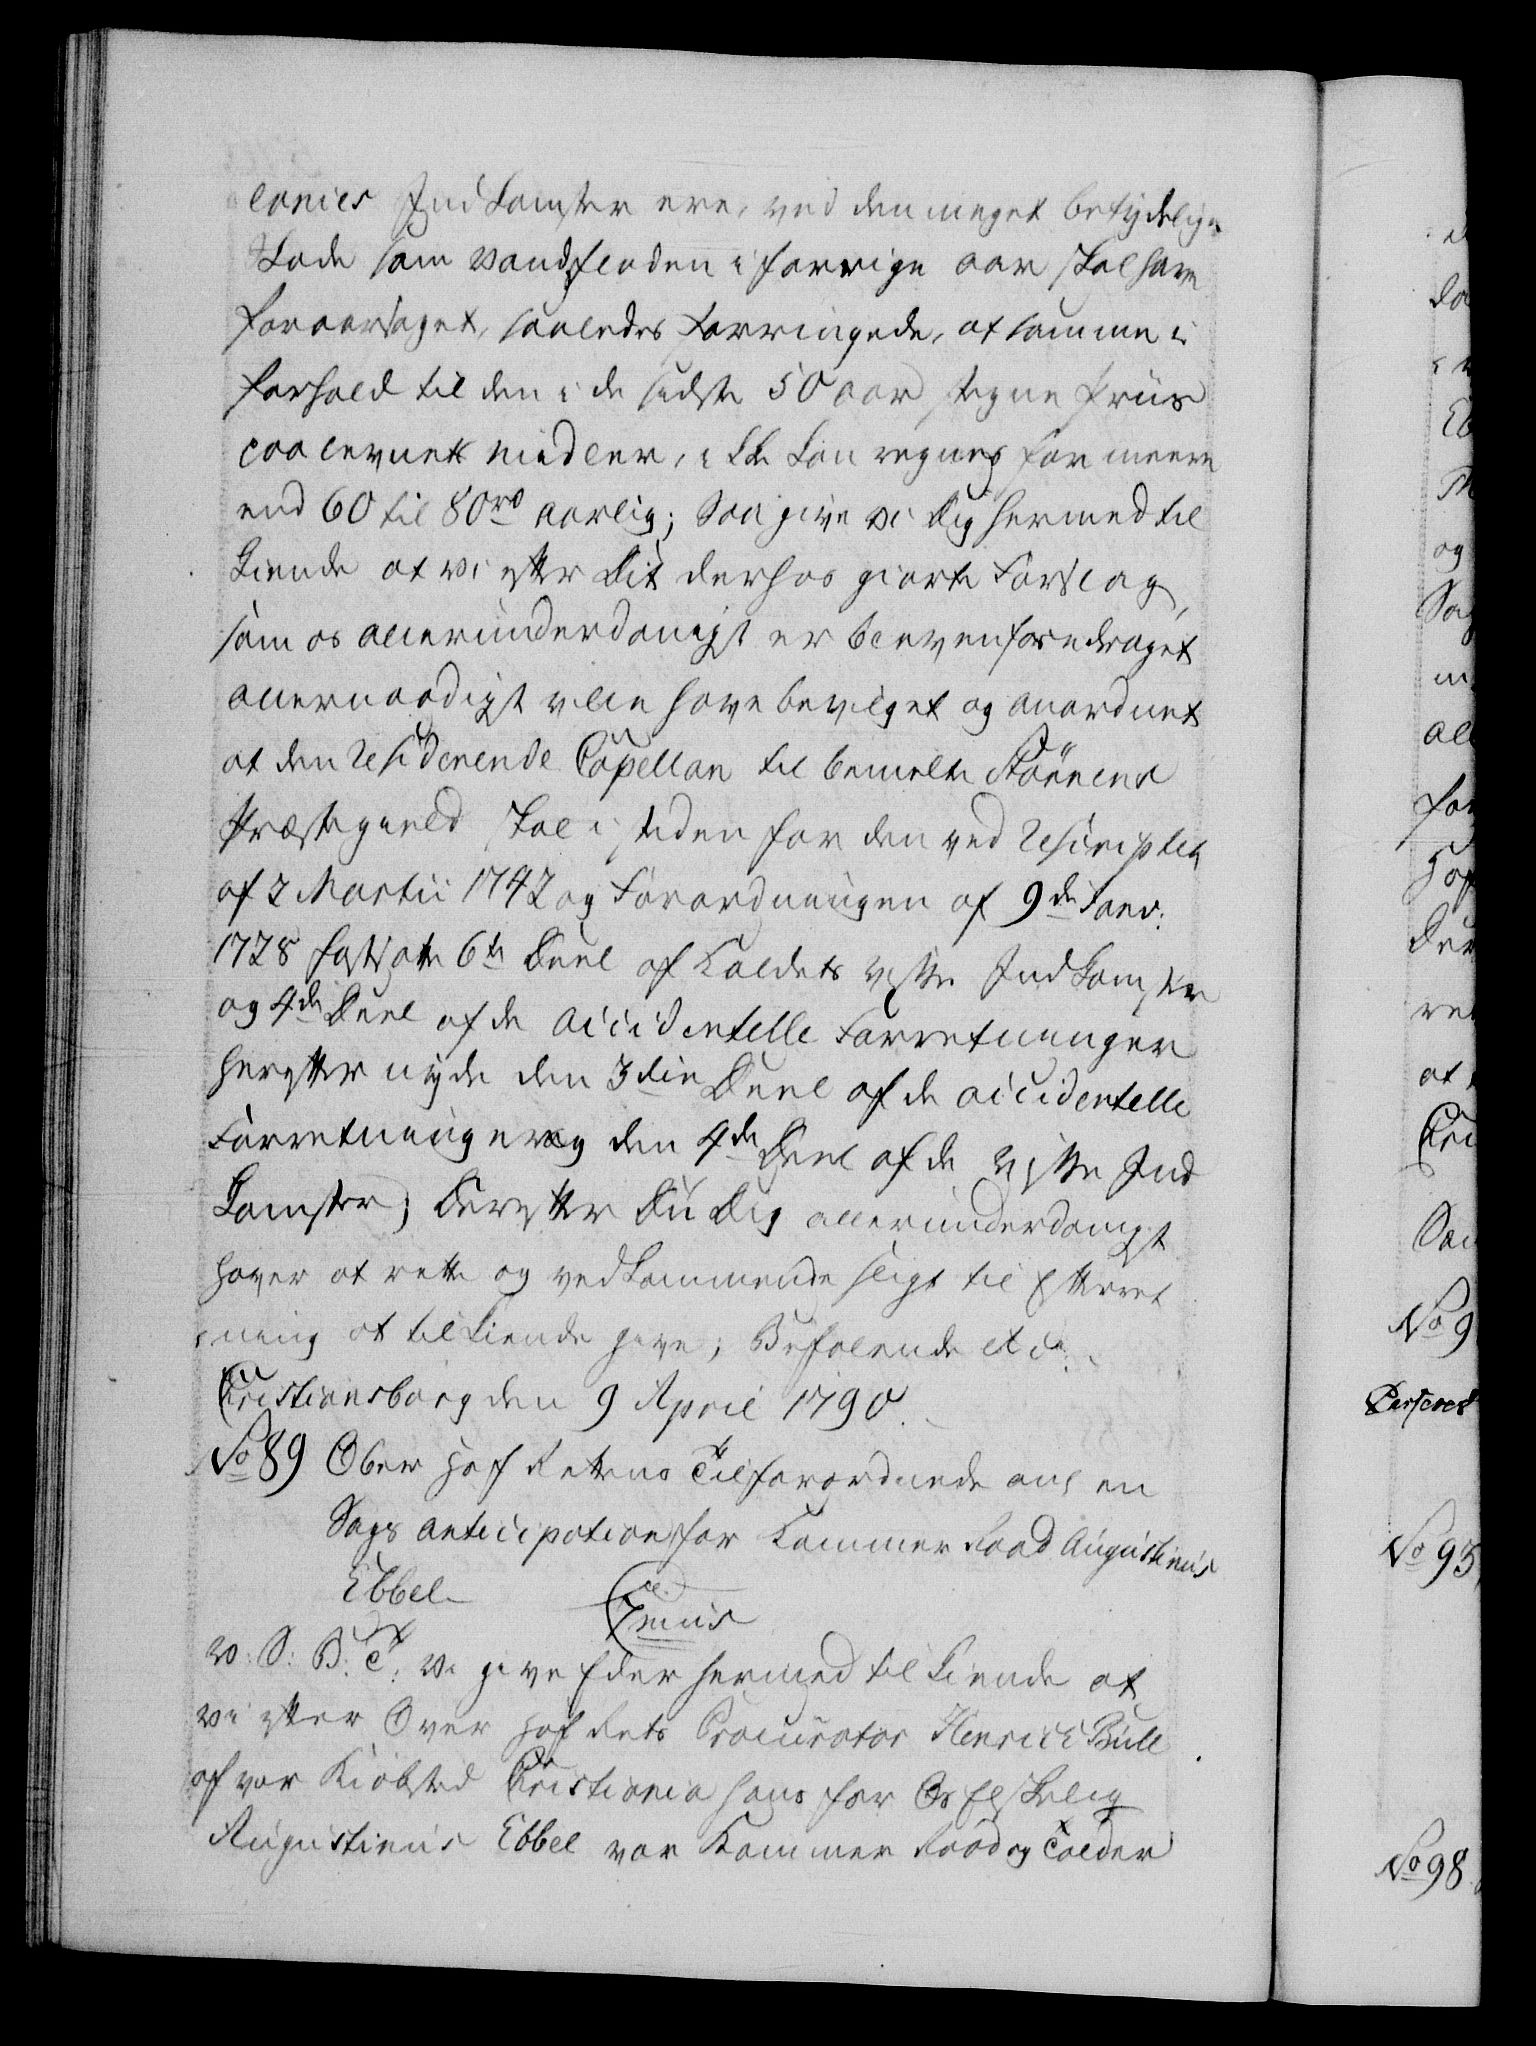 lanies Indkomster ere, ved den meget betydelige
Skade som Vandfloden i forrige aar skal have
foraarsaget, saaledes forringede, at samme i
forhold til den i de sidste 50 aar stegne Priis
paa levnets midler, ikke kan regnes for meere
end 60 til 80 rd aarlig; Saa give vi Dig hermed til
kiende at vi efter Dit derhos giorte Forslag,
som os allerunderdanigst er bleven foredraget
allernaadigst ville have bevilget og anordnet
at den residerende Capellan til bemelte Störens
Præstegield skal i steden for den ved Rescriptet
af 2 Martii 1742 og Forordningen af 9de Janv:
1728 fastsatte 6te Deel af Kaldets visse Indkomster
og 4de Deel af de accidentelle Forretninger
herefter nyde den 3die Deel af de accidentelle
Forretninger og den 4de Deel af de visse Ind
komster; Derefter Du Dig allerunderdanigst
haver at rette og vedkommende sligt til Efterret
ning at tilkiende give; Befalende etc:
Cristiansborg den 9 April 1790.
No 89 Ober Hof Rettens Tilforordnede anl en
Sags anticipation for Kammer Raad Augustinus
Ebbel
V: S: B: T: Vi give Eder hermed til kiende at
vi efter Over Hof Rets Procurator Henrich Bull
af vor Kiöbsted Cristiania hans for Os Elskelig
Augustinus Ebbel vor Kammer Raad og Tolder
No 9
No 95
No 98